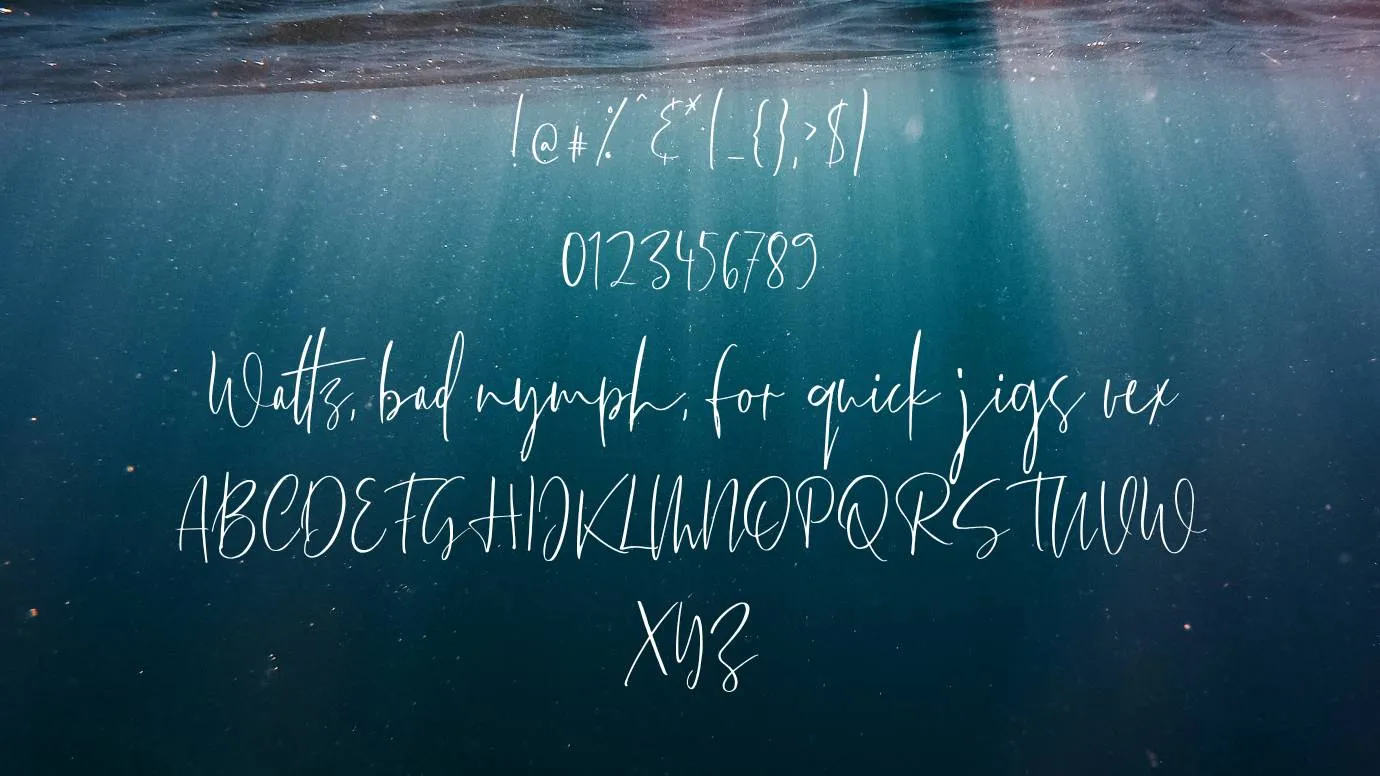 !@#%^&*(_{},>$)
0123456789
Waltz, bad nymph, for quick jigs vex
ABCDEFGHIJKLMNOPQRSTUVW
XYZ